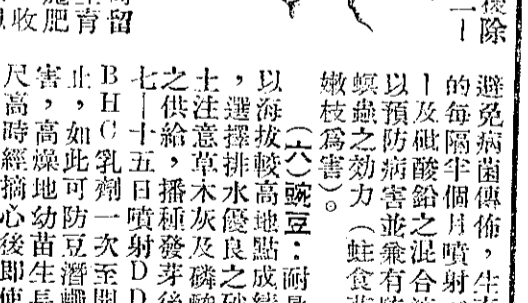 後除
一
避免病菌傳佈，生
的每隔半個月噴射
ー及砒酸鉛之混合液
以預防病害並兼有
螟蟲之効力（蛀食
嫩枝爲害）。
（六）豌豆：耐
以海拔較高地點成績
，選擇排水優良之砂
土注意草木灰及磷酸
之供給，播種發芽後
七ー十五日噴射ＤＤ
ＢＨＣ乳劑一次至開
止，如此可防豆潛蠅
害，高燥地幼苗生長
尺高時經摘心後即使
留
育
肥
收